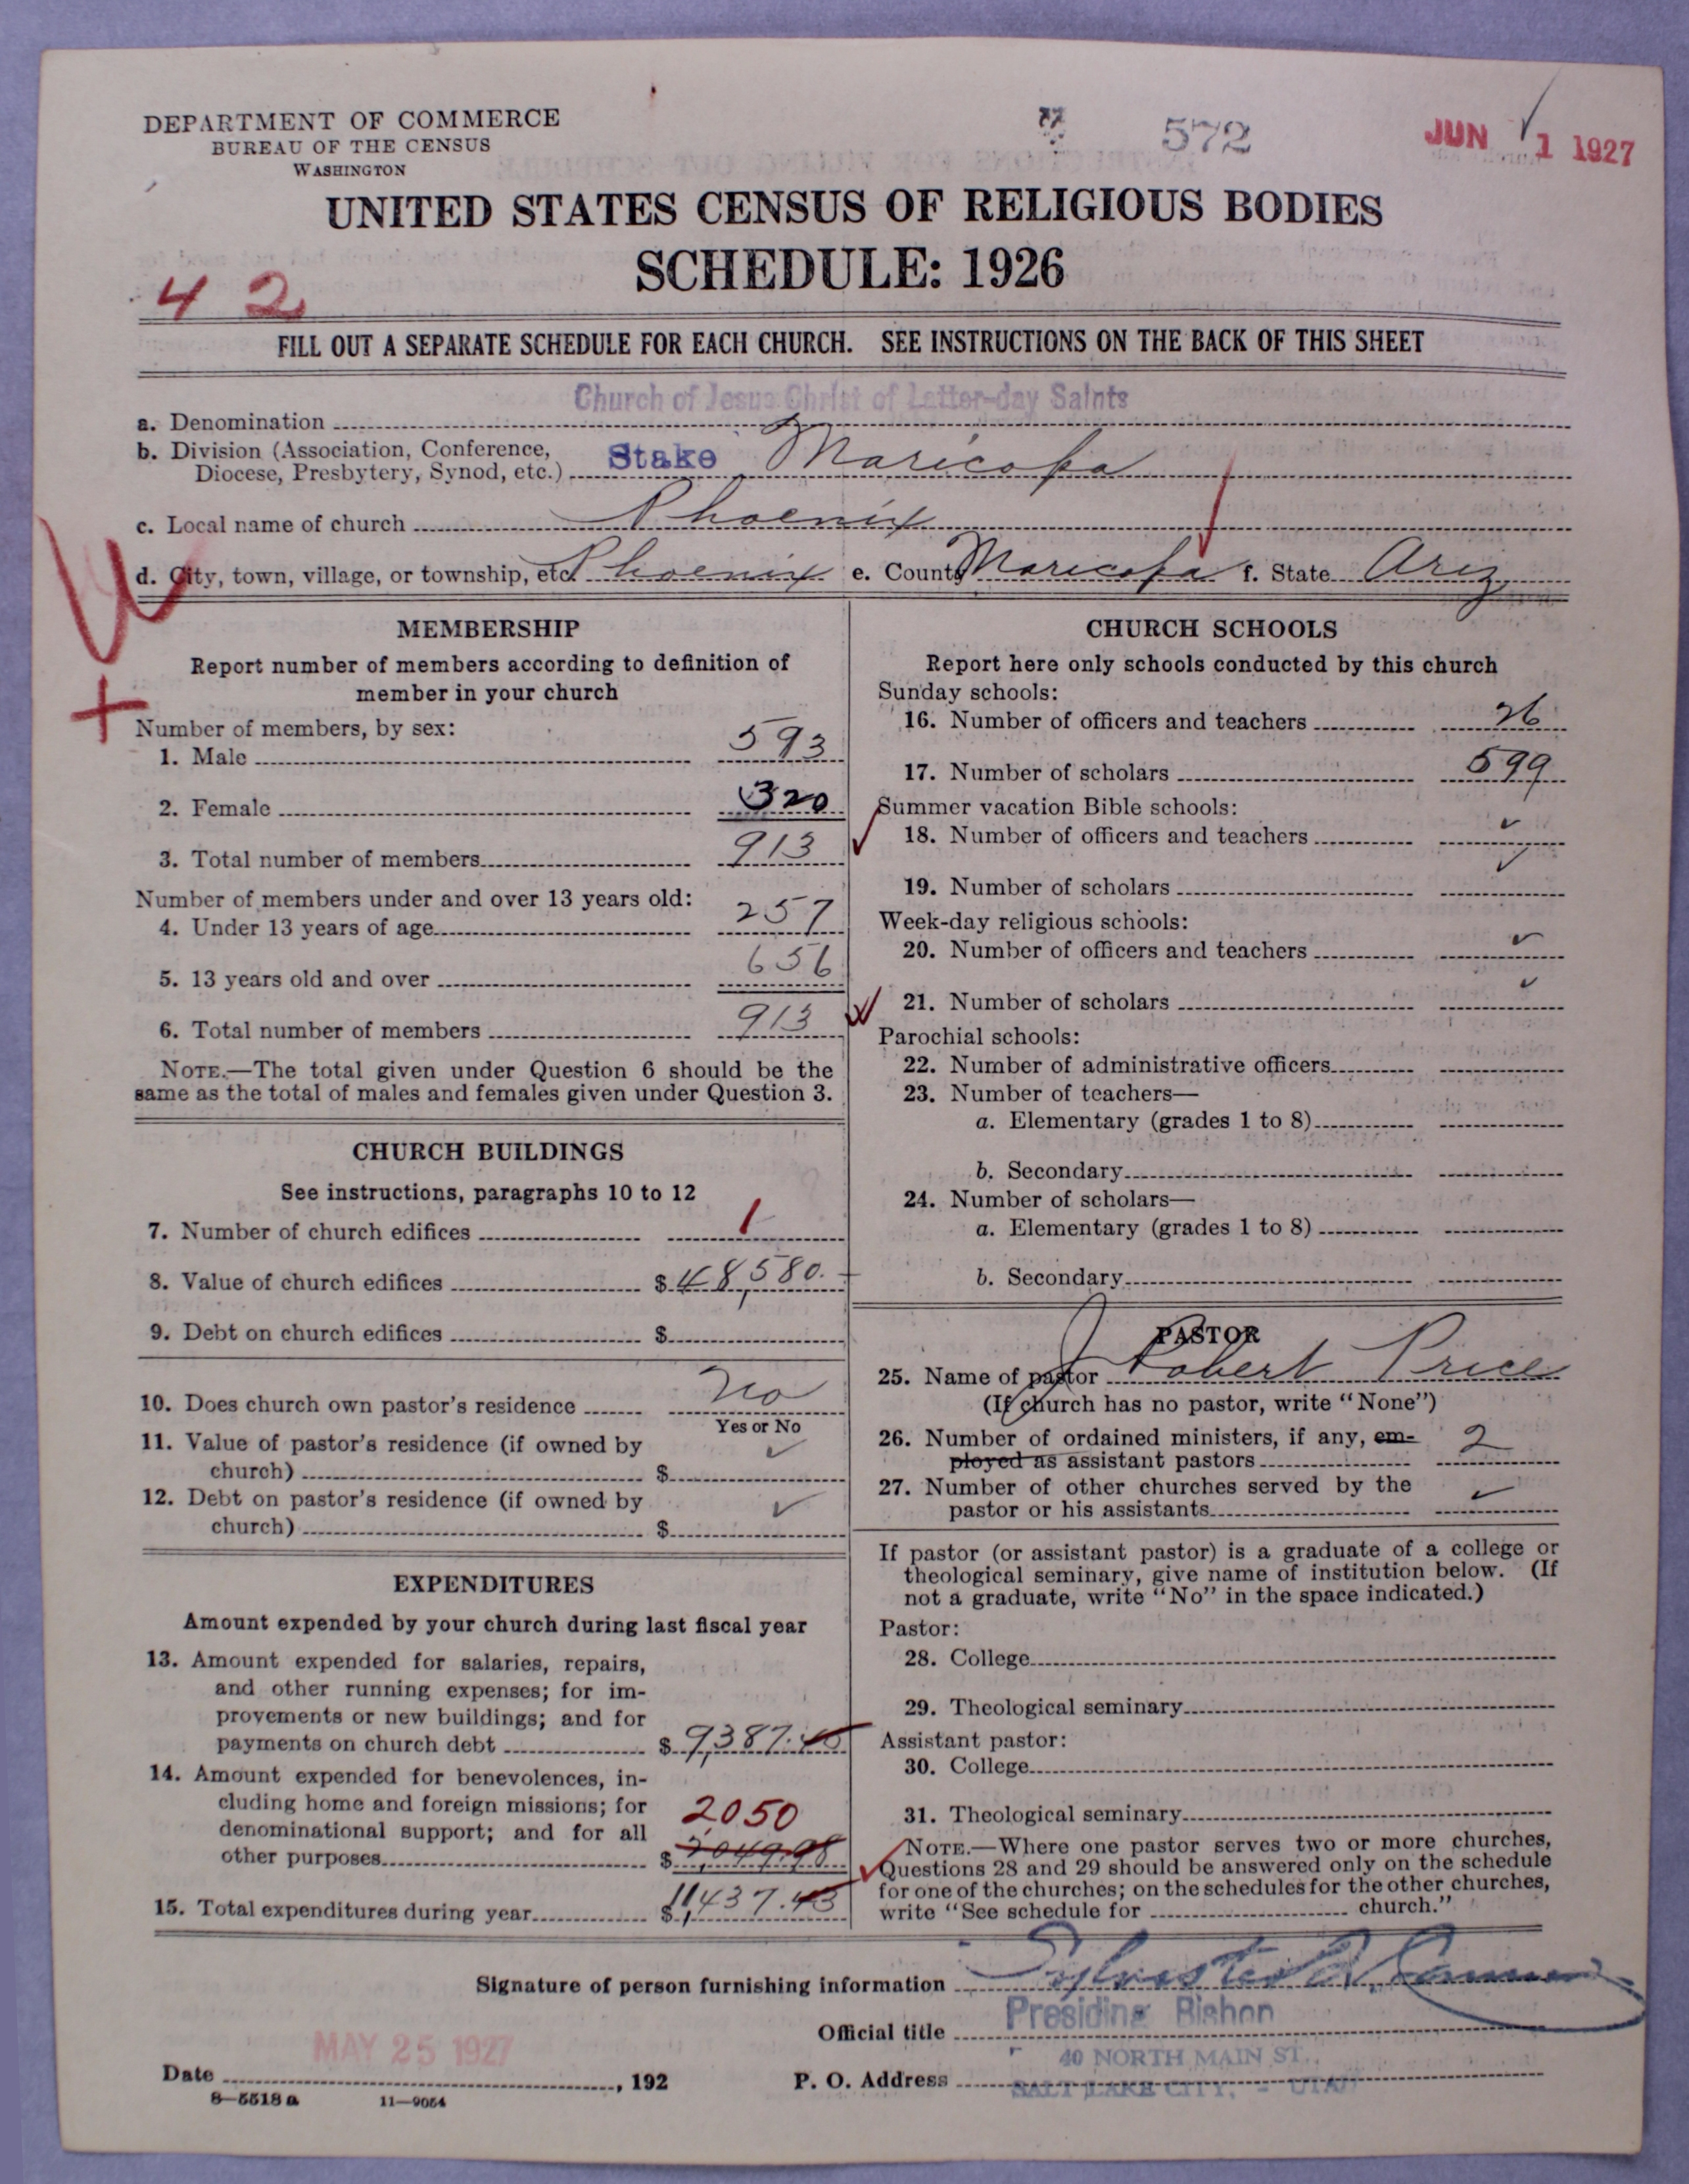 DEPARTMENT OF COMMERCE
BUREAU OF THE CENSUS
WASHINGTON
572
JUN 1 1927
UNITED STATES CENSUS OF RELIGIOUS BODIES
SCHEDULE: 1926
4 2
FILL OUT A SEPARATE SCHEDULE FOR EACH CHURCH. SEE INSTRUCTIONS ON THE BACK OF THIS SHEET
a. Denomination Church of Jesus Christ of Latter-day Saints
b. Division (Association, Conference,
Diocese, Presbytery, Synod, etc.) Stake Maricopa
c. Local name of church Phoenix
d. City, town, village, or township, etc. Phoenix e. County Maricopa f. State Ariz
MEMBERSHIP
Report number of members according to definition of
member in your church
Number of members, by sex:
1. Male 593
2. Female 320
3. Total number of members 913
Number of members under and over 13 years old:
4. Under 13 years of age 257
5. 13 years old and over 656
6. Total number of members 913
NOTE.—The total given under Question 6 should be the
same as the total of males and females given under Question 3.
CHURCH BUILDINGS
See instructions, paragraphs 10 to 12
7. Number of church edifices 1
8. Value of church edifices $ 48,580.
9. Debt on church edifices $
10. Does church own pastor's residence No
Yes or No
11. Value of pastor's residence (if owned by
church) $
12. Debt on pastor's residence (if owned by
church) $
EXPENDITURES
Amount expended by your church during last fiscal year
13. Amount expended for salaries, repairs,
and other running expenses; for im-
provements or new buildings; and for
payments on church debt $ 9,387.45
14. Amount expended for benevolences, in-
cluding home and foreign missions; for
denominational support; and for all
2050
other purposes $ 2,049.98
15. Total expenditures during year $ 11,437.43
CHURCH SCHOOLS
Report here only schools conducted by this church
Sunday schools:
16. Number of officers and teachers 26
17. Number of scholars 599
Summer vacation Bible schools:
18. Number of officers and teachers
19. Number of scholars
Week-day religious schools:
20. Number of officers and teachers
21. Number of scholars
Parochial schools:
22. Number of administrative officers
23. Number of teachers—
a. Elementary (grades 1 to 8)
b. Secondary
24. Number of scholars—
a. Elementary (grades 1 to 8)
b. Secondary
PASTOR
25. Name of pastor J Robert Price
(If church has no pastor, write "None")
26. Number of ordained ministers, if any, em-
ployed as assistant pastors 2
27. Number of other churches served by the
pastor or his assistants
If pastor (or assistant pastor) is a graduate of a college or
theological seminary, give name of institution below. (If
not a graduate, write "No" in the space indicated.)
Pastor:
28. College
29. Theological seminary
Assistant pastor:
30. College
31. Theological seminary
NOTE.—Where one pastor serves two or more churches,
Questions 28 and 29 should be answered only on the schedule
for one of the churches; on the schedules for the other churches,
write "See schedule for church."
Signature of person furnishing information Sylvester Q. Cannon
Official title Presiding Bishop
Date MAY 25 1927, 192
P. O. Address 40 NORTH MAIN ST.,
SALT LAKE CITY, - UTAH
8—5518 a 11—9054